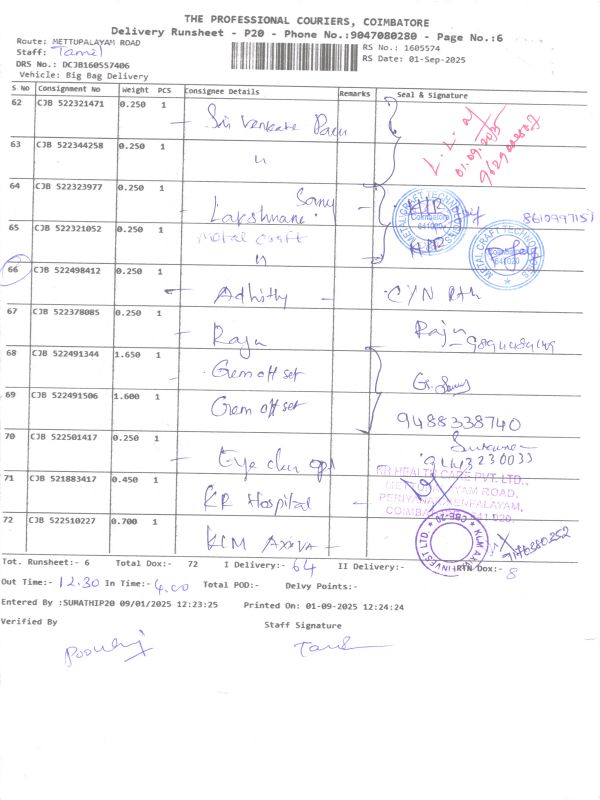 THE PROFESSIONAL COURIERS, COIMBATORE
Delivery Runsheet - P20 - Phone No.:9047080280 - Page No.:6
Route: METTUPALAYAM ROAD
RS No.: 1605574
Staff: Tamil
RS Date: 01-Sep-2025
DRS No.: DCJB160557406
Vehicle: Big Bag Delivery
S No Consignment No Weight PCS Consignee Details Remarks Seal & Signature
62 CJB 522321471 0.250 1 Sri Venkate
01.09.2025
63 CJB 522344258 0.250 1 "
64 CJB 522323977 0.250 1 Samy
Lakshmana
METAL CRAFT TECHNOLOGIES Coimbatore 641020
65 CJB 522321052 0.250 1 metal craft
"
METAL CRAFT TECHNOLOGIES Coimbatore 641020
66 CJB 522498412 0.250 1 Adhithy
67 CJB 522378085 0.250 1 Raju Raju
68 CJB 522491344 1.650 1 Gem off set
69 CJB 522491506 1.600 1 Gem off set 9488338740
70 CJB 522501417 0.250 1 Eye
9443230033
71 CJB 521883417 0.450 1 KR Hospital
KR HEALTH CARE PVT. LTD.,
COIMBATORE
72 CJB 522510227 0.700 1 KLM AXXVA
CBE-20
Tot. Runsheet:- 6 Total Dox:- 72 I Delivery:- 64 II Delivery:- RTN Dox:- 8
Out Time:- 12.30 In Time:- 4.00 Total POD:- Delvy Points:-
Entered By :SUMATHIP20 09/01/2025 12:23:25 Printed On: 01-09-2025 12:24:24
Verified By Staff Signature